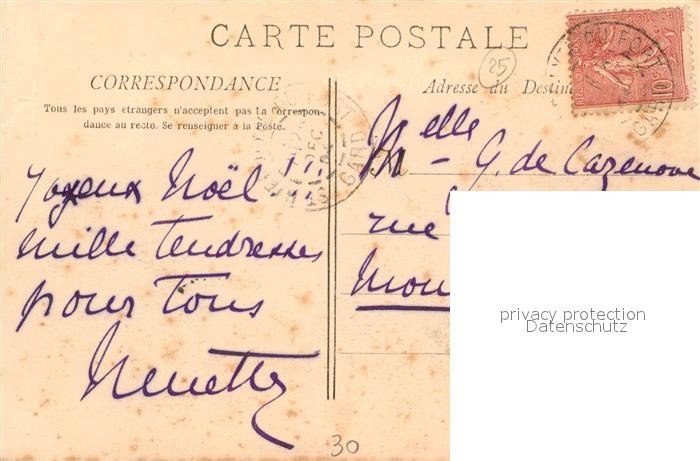 CARTE POSTALE
25
CORRESPONDANCE
Tous les pays etrangers n'acceptent pas la Correspon-
dance au recto. Se renseigner à la Poste.
Joyeux Noël
mille tendresses
pour tous
Nenette
30
Adresse du Destin
Melle G. de Cazenove
rue
Mon
REPUBLIQUE
10
GARD
DEC
GARD
privacy protection
Datenschutz